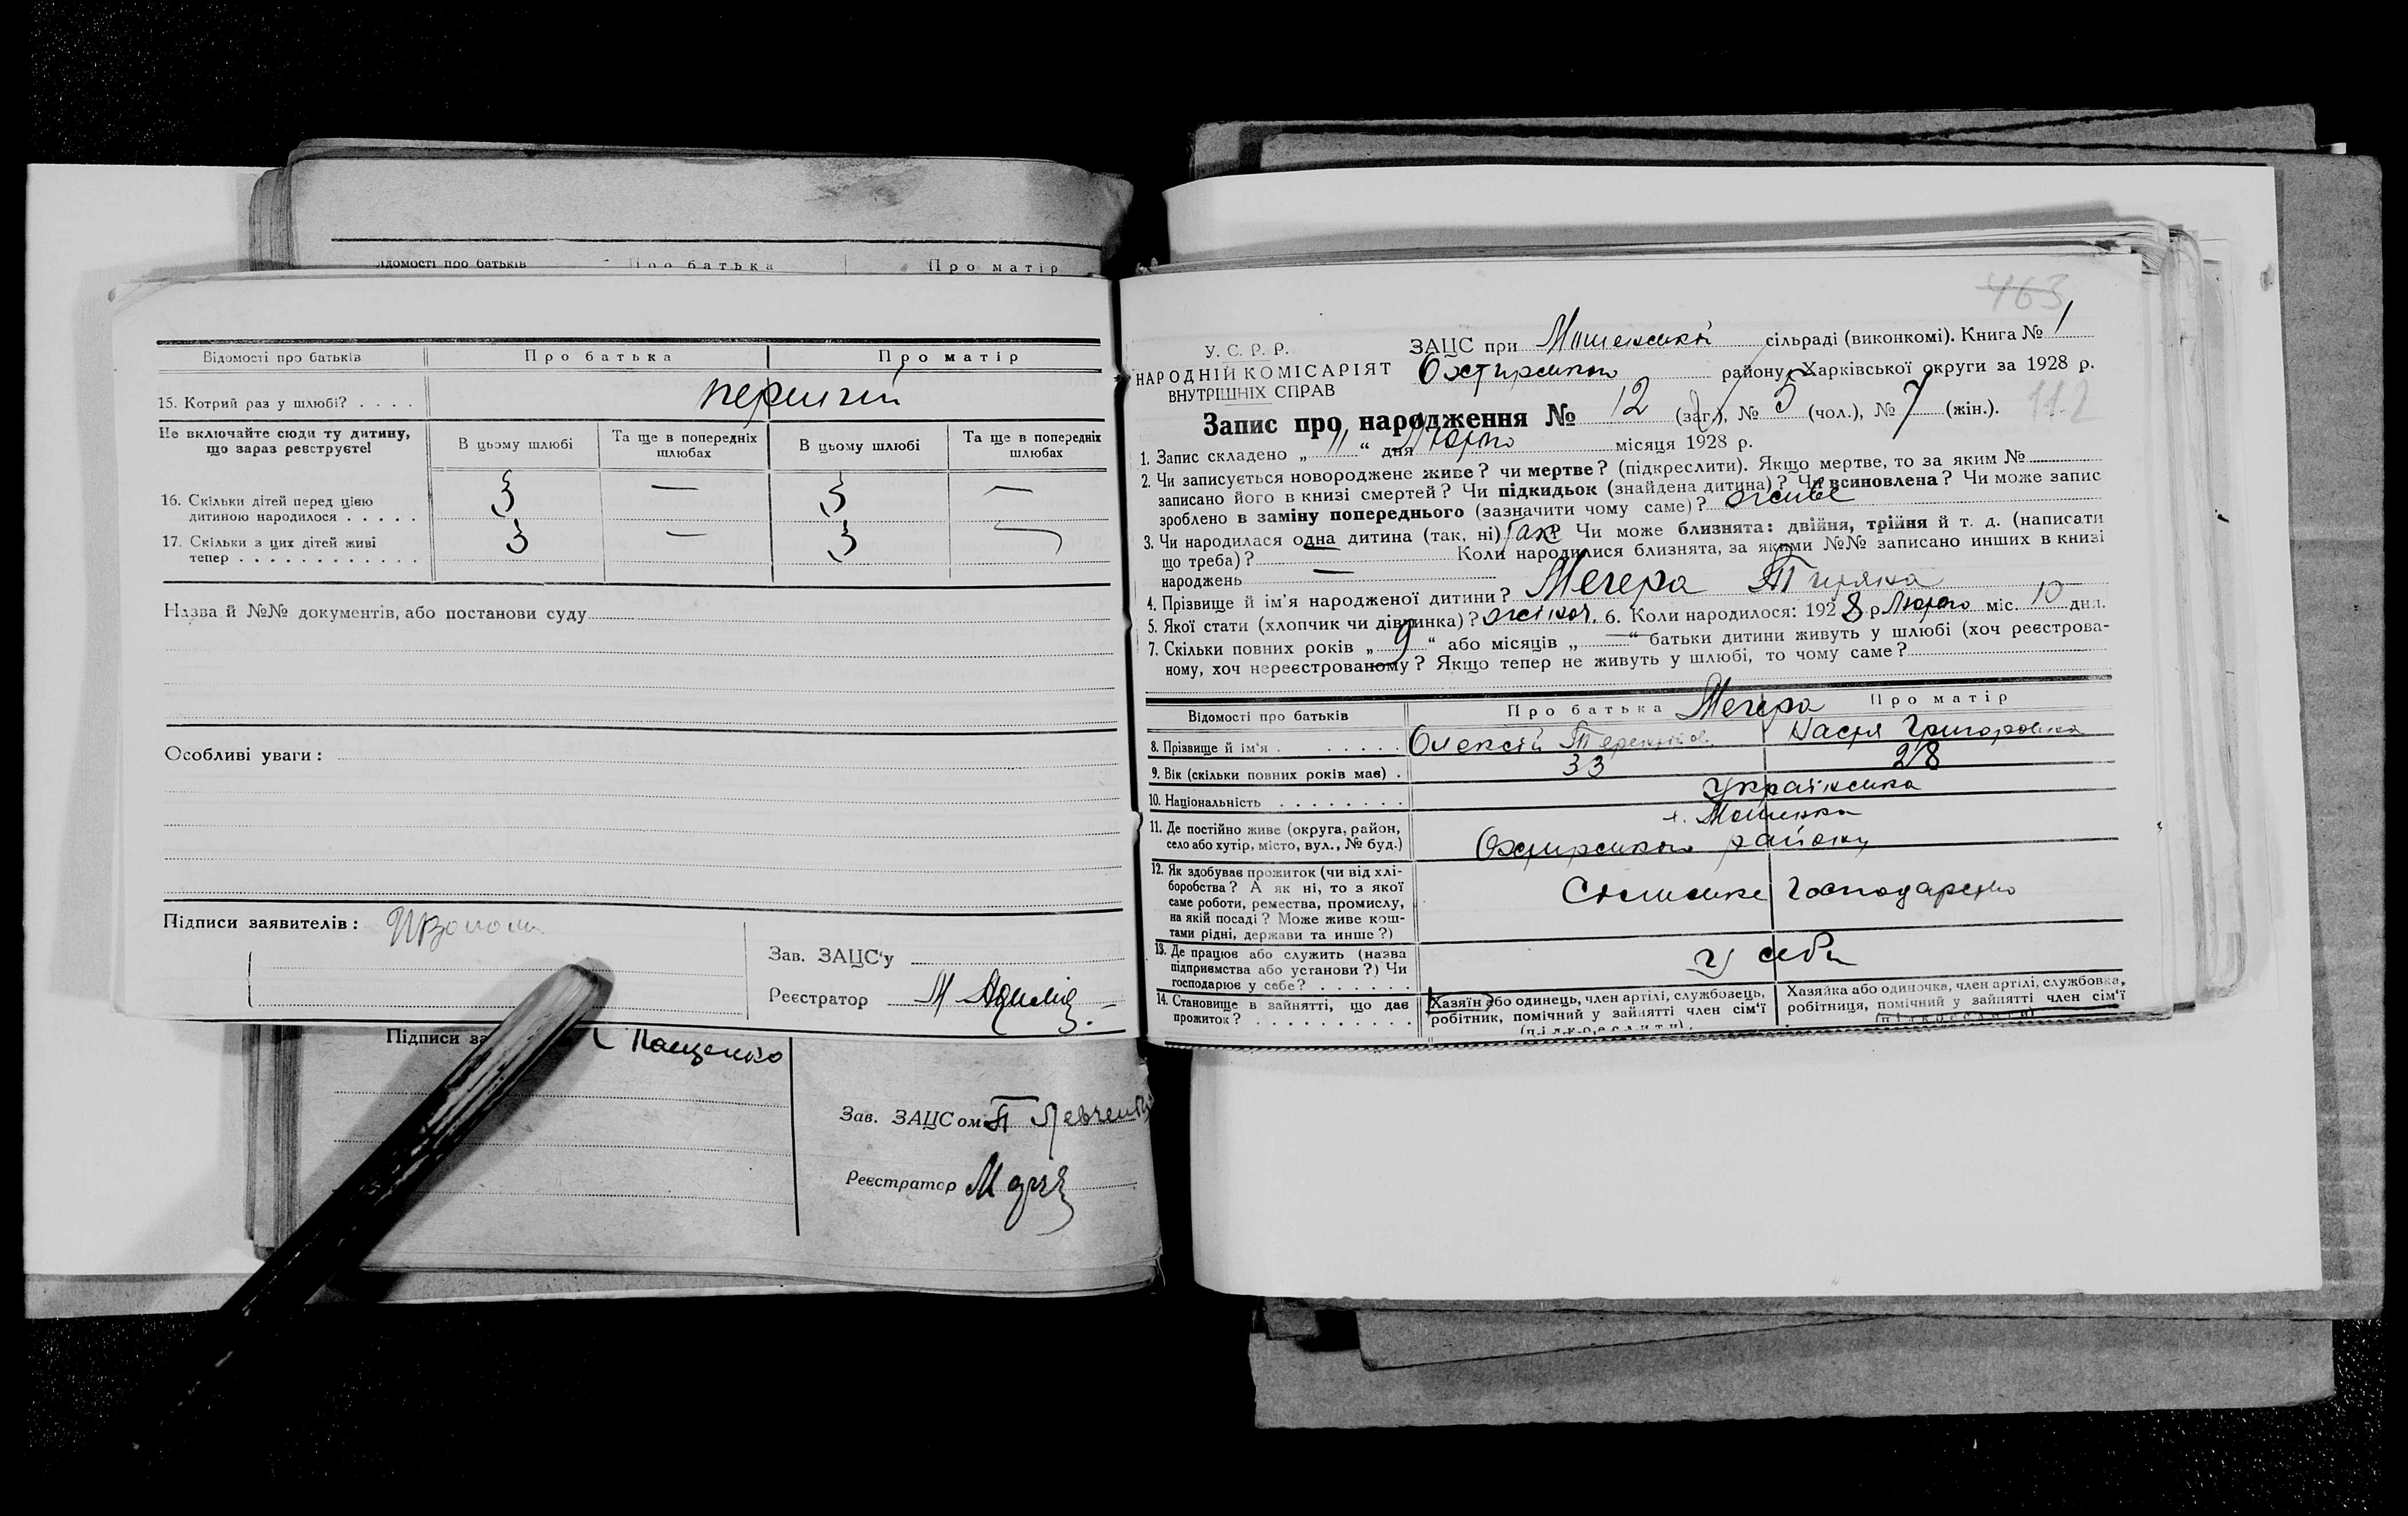 Відомості про батьків Про батька Про матір
Відомості про батьків Про батька Про матір
15. Котрий раз у шлюбі? . . . . перший
Не включайте сюди ту дитину, що зараз реєструєте!
В цьому шлюбі
Та ще в попередніх шлюбах
В цьому шлюбі
Та ще в попередніх шлюбах
16. Скільки дітей перед цією
дитиною народилося . . . . . 3 — 3 —
17. Скільки з цих дітей живі
тепер . . . . . . . . . . . . 3 — 3 —
Назва й №№ документів, або постанови суду
Особливі уваги :
Підписи заявителів :
Зав. ЗАЦС'у
Реєстратор
Підписи за Пащенко
Зав. ЗАЦСом П Левченко
Реєстратор
463
У. С. Р. Р.
НАРОДНІЙ КОМІСАРІЯТ
ВНУТРІШНІХ СПРАВ
ЗАЦС при сільраді (виконкомі). Книга № 1
Охтирського району, Харківської округи за 1928 р.
112
Запис про народження № 12 (заг.), № 5 (чол.), № 7 (жін.).
1. Запис складено „ 11 “ дня Лютого місяця 1928 р.
2. Чи записується новороджене живе? чи мертве? (підкреслити). Якщо мертве, то за яким №
записано його в книзі смертей? Чи підкидьок (знайдена дитина)? Чи всиновлена? Чи може запис
зроблено в заміну попереднього (зазначити чому саме)? живе
3. Чи народилася одна дитина (так, ні) так Чи може близнята: двійня, трійня й т. д. (написати
що треба)? — Коли народилися близнята, за якими №№ записано инших в книзі
народжень —
4. Прізвище й ім'я народженої дитини? Мегера
5. Якої стати (хлопчик чи дівчинка)? жіноч. 6. Коли народилося: 1928 р Лютого міс. 10 дня.
7. Скільки повних років „ 9 “ або місяців „ — “ батьки дитини живуть у шлюбі (хоч реєстрова-
ному, хоч нереєстрованому? Якщо тепер не живуть у шлюбі, то чому саме?
Відомості про батьків Про батька Мегера Про матір
8. Прізвище й ім'я . . . . . . Олексій Терентійов. Настя Григоровна
9. Вік (скільки повних років має) . 33 28
10. Національність . . . . . . . . Українська
11. Де постійно живе (округа, район,
село або хутір, місто, вул., № буд.)
Охтирського району
12. Як здобуває прожиток (чи від хлі-
боробства? А як ні, то з якої
саме роботи, ремества, промислу,
на якій посаді? Може живе кош-
тами рідні, держави та инше?)
Сільське Господарство
13. Де працює або служить (назва
підприємства або установи?) Чи
господарює у себе? . . . . . .
у себе
14. Становище в зайнятті, що дає
прожиток? . . . . . . . . . .
Хазяїн або одинець, член артілі, службовець,
робітник, помічний у зайнятті член сім'ї
(підкреслити).
Хазяйка або одиночка, член артілі, службовка,
робітниця, помічний у зайнятті член сім'ї
(підкреслити)